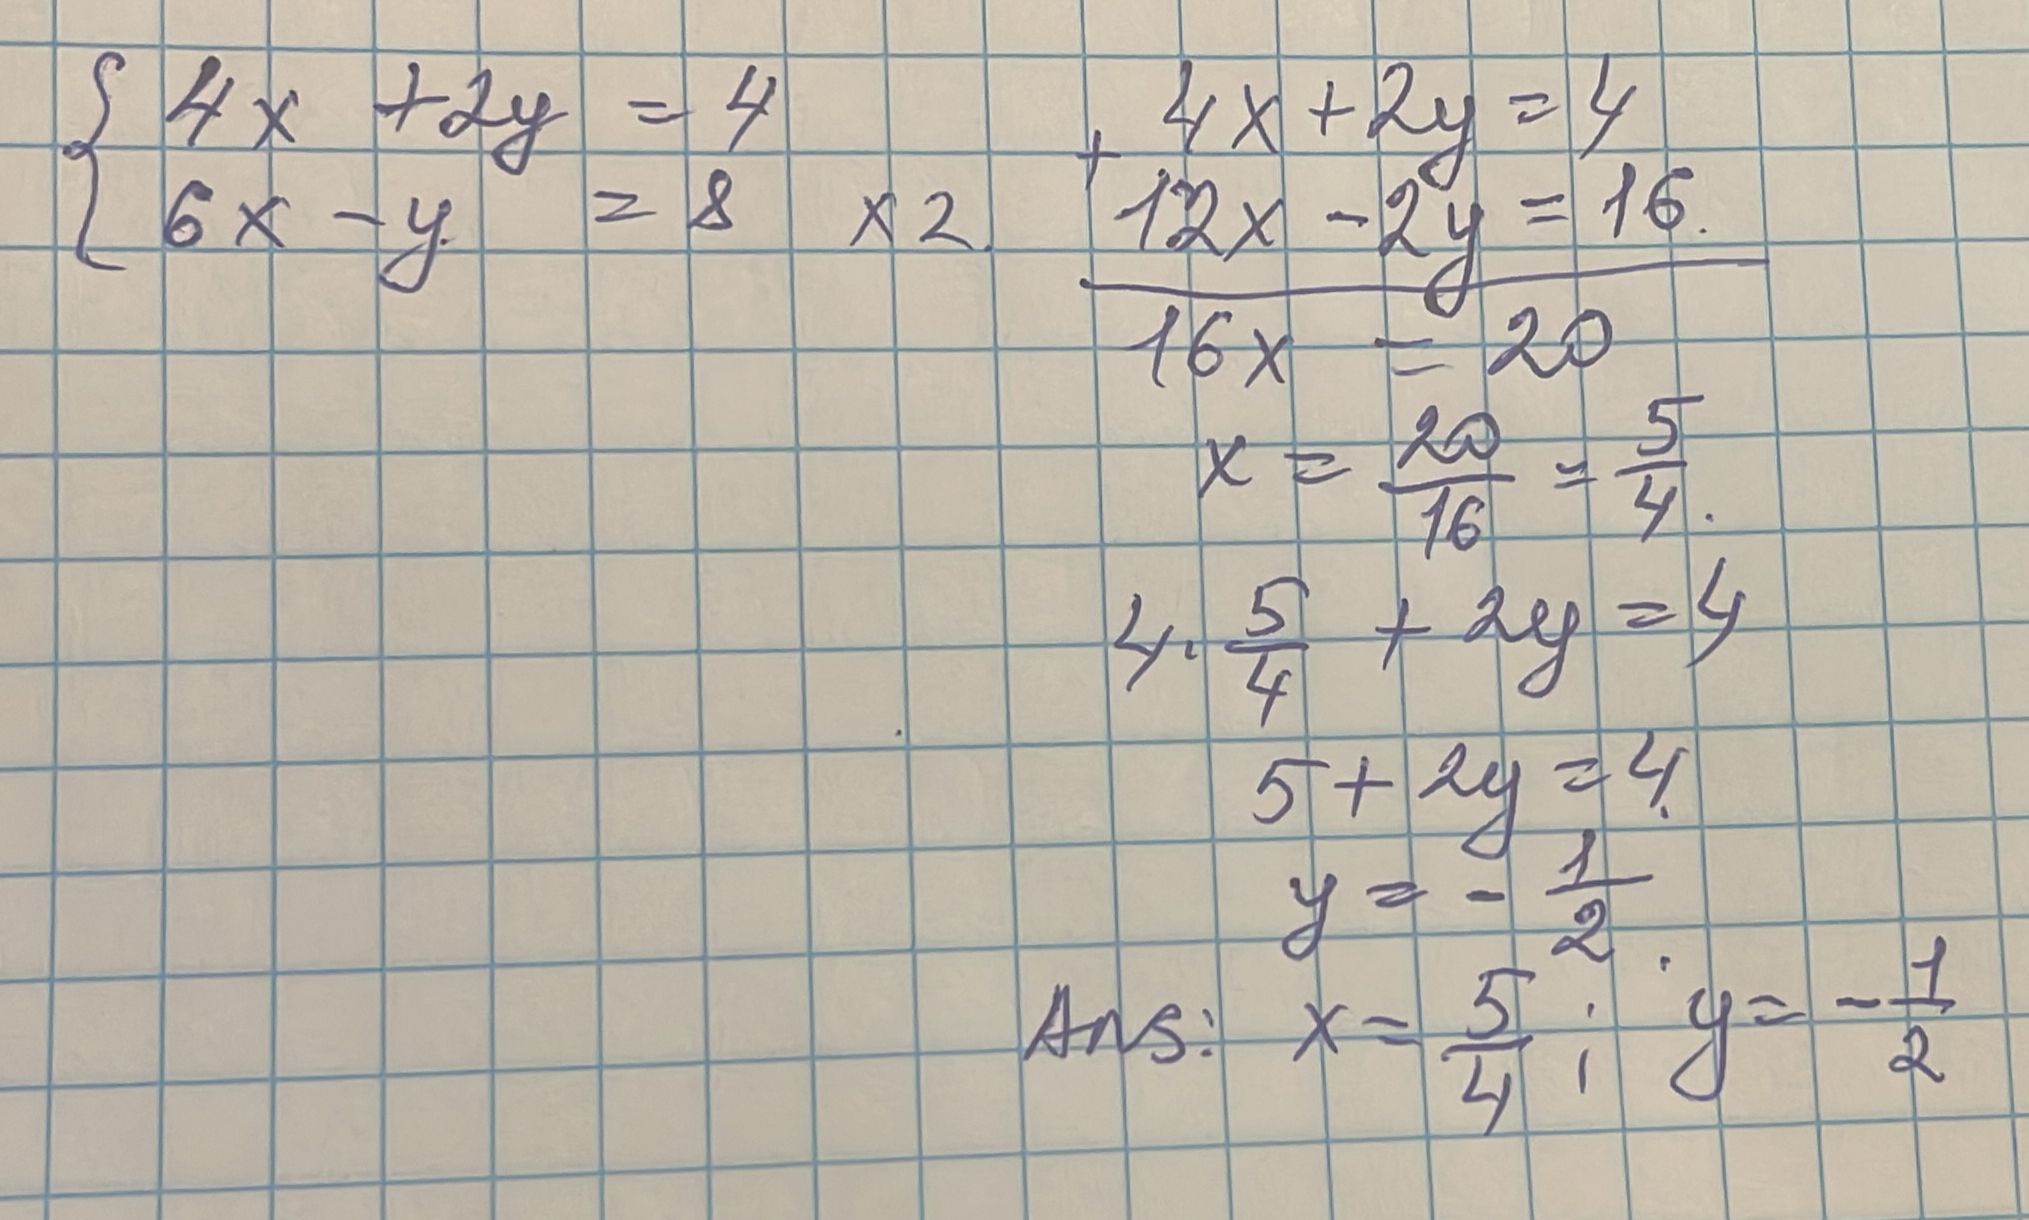 { 4x + 2y = 4
6x - y = 8 x 2.
+ 4x + 2y = 4
12x - 2y = 16.
16x = 20
x = 20/16 = 5/4.
4 · 5/4 + 2y = 4
5 + 2y = 4.
y = - 1/2.
Ans: x = 5/4; y = - 1/2